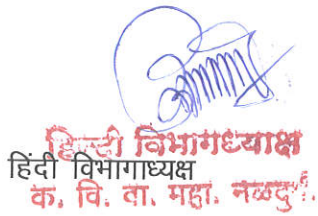 हिन्दी विभागध्याक्ष
हिंदी विभागाध्यक्ष
क. वि. ता. महा. नळदुर्ग.